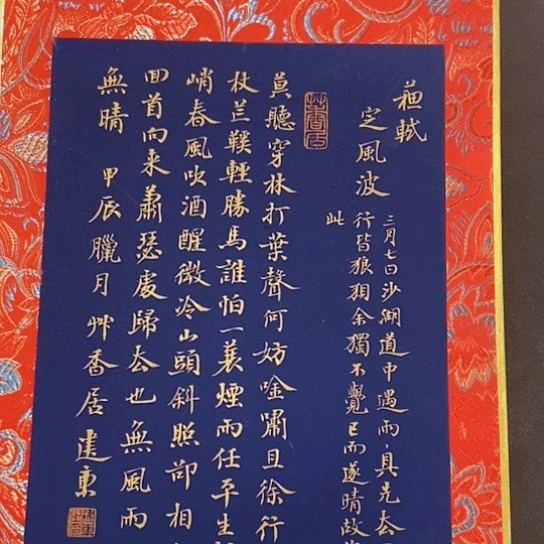 蘓軾
定風波
三月七日沙湖道中遇雨具先去
行皆狼狽余獨不覺已而遂晴故
此
艸香居
莫聽穿林打葉聲何妨吟嘯且徐行
杖芒鞵輕勝馬誰怕一蓑煙雨任平生
峭春風吹酒醒微冷山頭斜照卻相
回首向來蕭瑟處歸去也無風雨
無晴 甲辰臘月艸香居建東